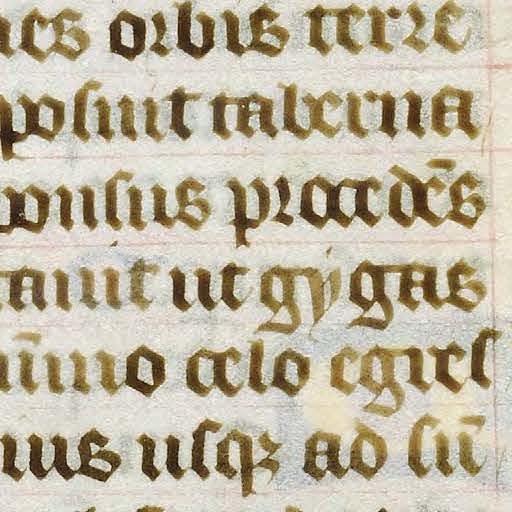 nes orbis terre
posuit taberna
ponsus procedēs
tauit ut gygas
ūmo celo egres
ius usqꝫ ad sū